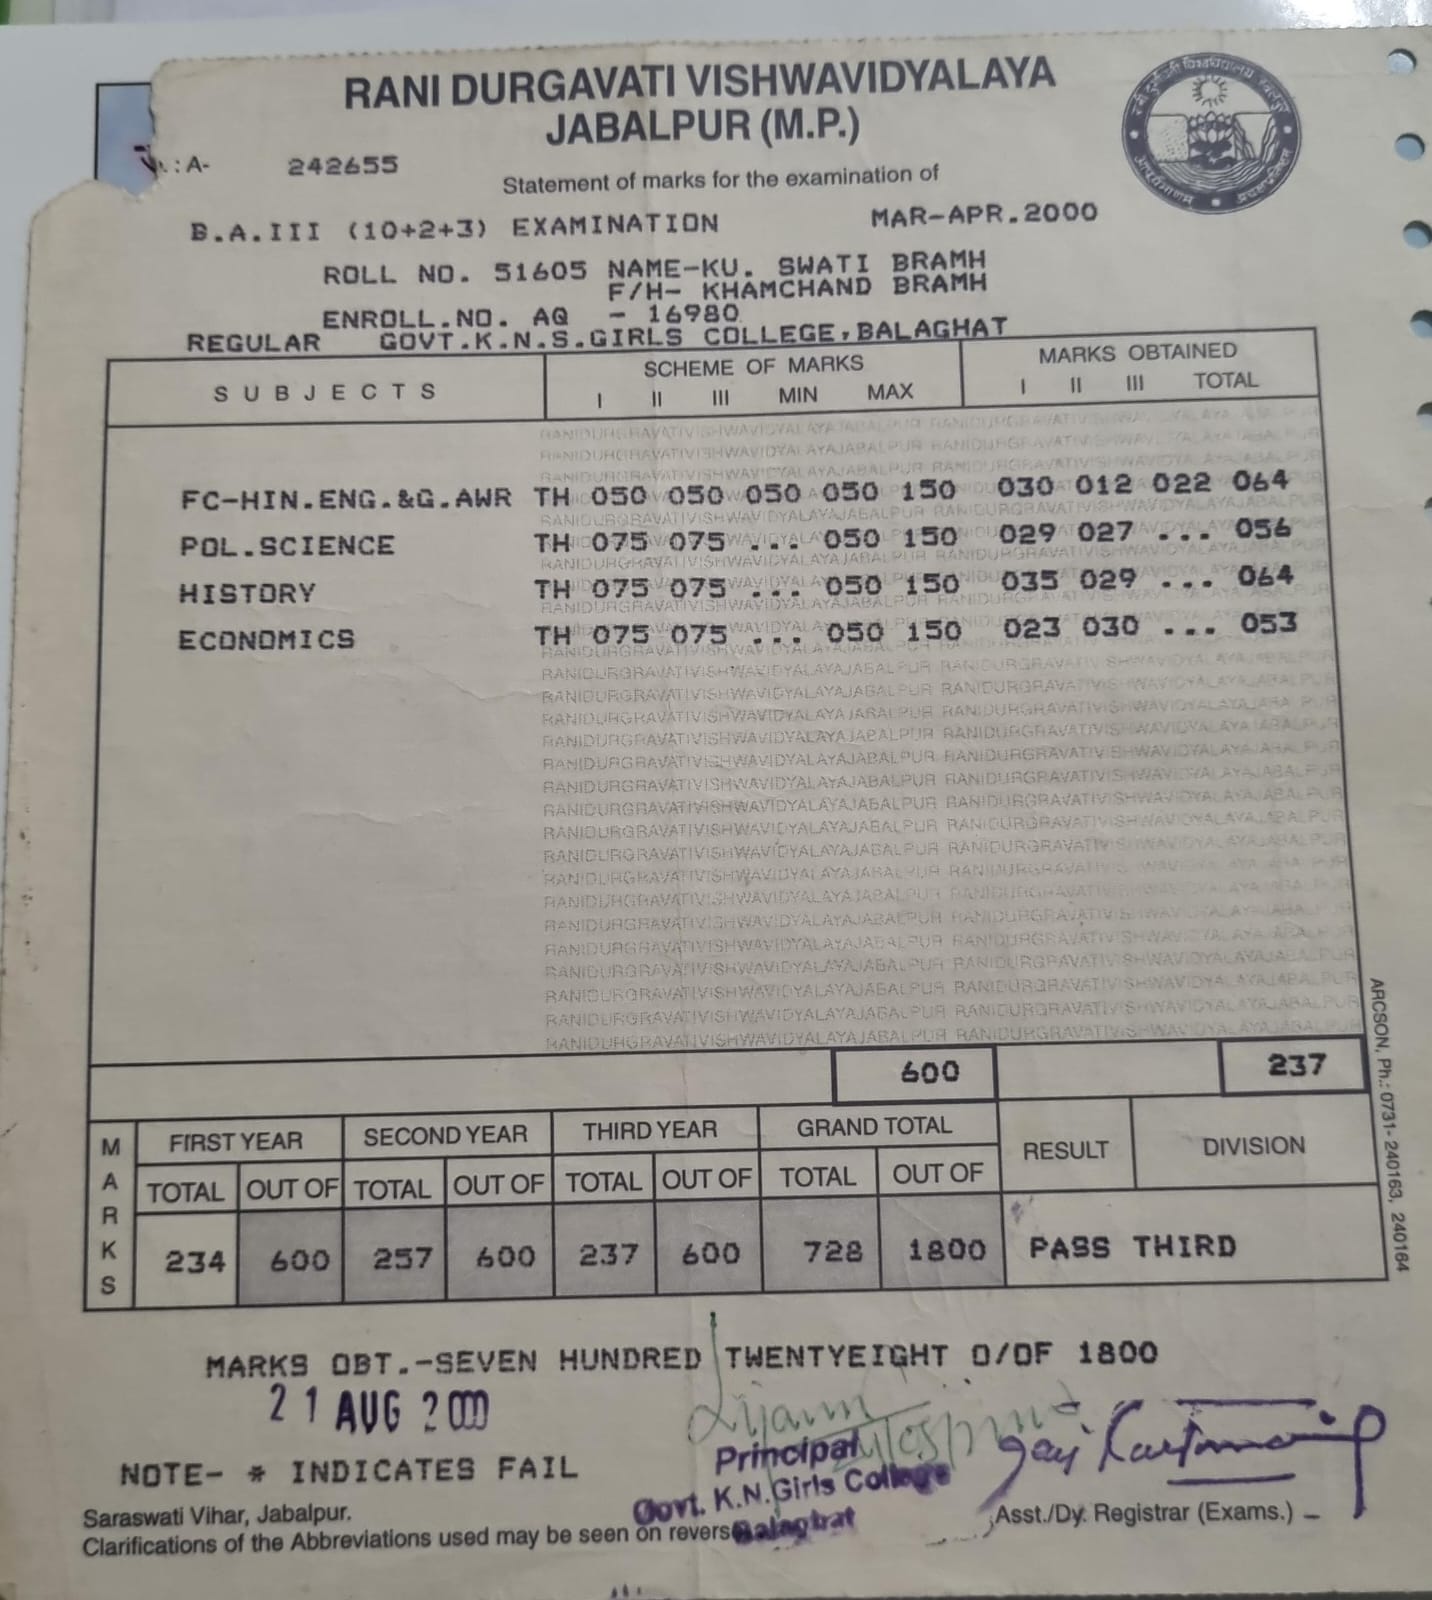 RANI DURGAVATI VISHWAVIDYALAYA
JABALPUR (M.P.)
: A- 242655
Statement of marks for the examination of
B.A.III (10+2+3) EXAMINATION MAR-APR.2000
ROLL NO. 51605 NAME-KU. SWATI BRAMH
F/H- KHAMCHAND BRAMH
ENROLL.NO. AQ - 16980
REGULAR GOVT.K.N.S.GIRLS COLLEGE,BALAGHAT
SUBJECTS SCHEME OF MARKS MARKS OBTAINED
I II III MIN MAX I II III TOTAL
FC-HIN.ENG.&G.AWR TH 050 050 050 050 150 030 012 022 064
POL.SCIENCE TH 075 075 ... 050 150 029 027 ... 056
HISTORY TH 075 075 ... 050 150 035 029 ... 064
ECONOMICS TH 075 075 ... 050 150 023 030 ... 053
600 237
MARKS FIRST YEAR SECOND YEAR THIRD YEAR GRAND TOTAL RESULT DIVISION
TOTAL OUT OF TOTAL OUT OF TOTAL OUT OF TOTAL OUT OF
234 600 257 600 237 600 728 1800 PASS THIRD
ARCSON, Ph.: 0731- 240163, 240164
MARKS OBT.-SEVEN HUNDRED TWENTYEIGHT O/OF 1800
21 AUG 2000
Principal
NOTE- * INDICATES FAIL
Govt. K.N.Girls College
Balaghat
Asst./Dy. Registrar (Exams.)
Saraswati Vihar, Jabalpur.
Clarifications of the Abbreviations used may be seen on revers